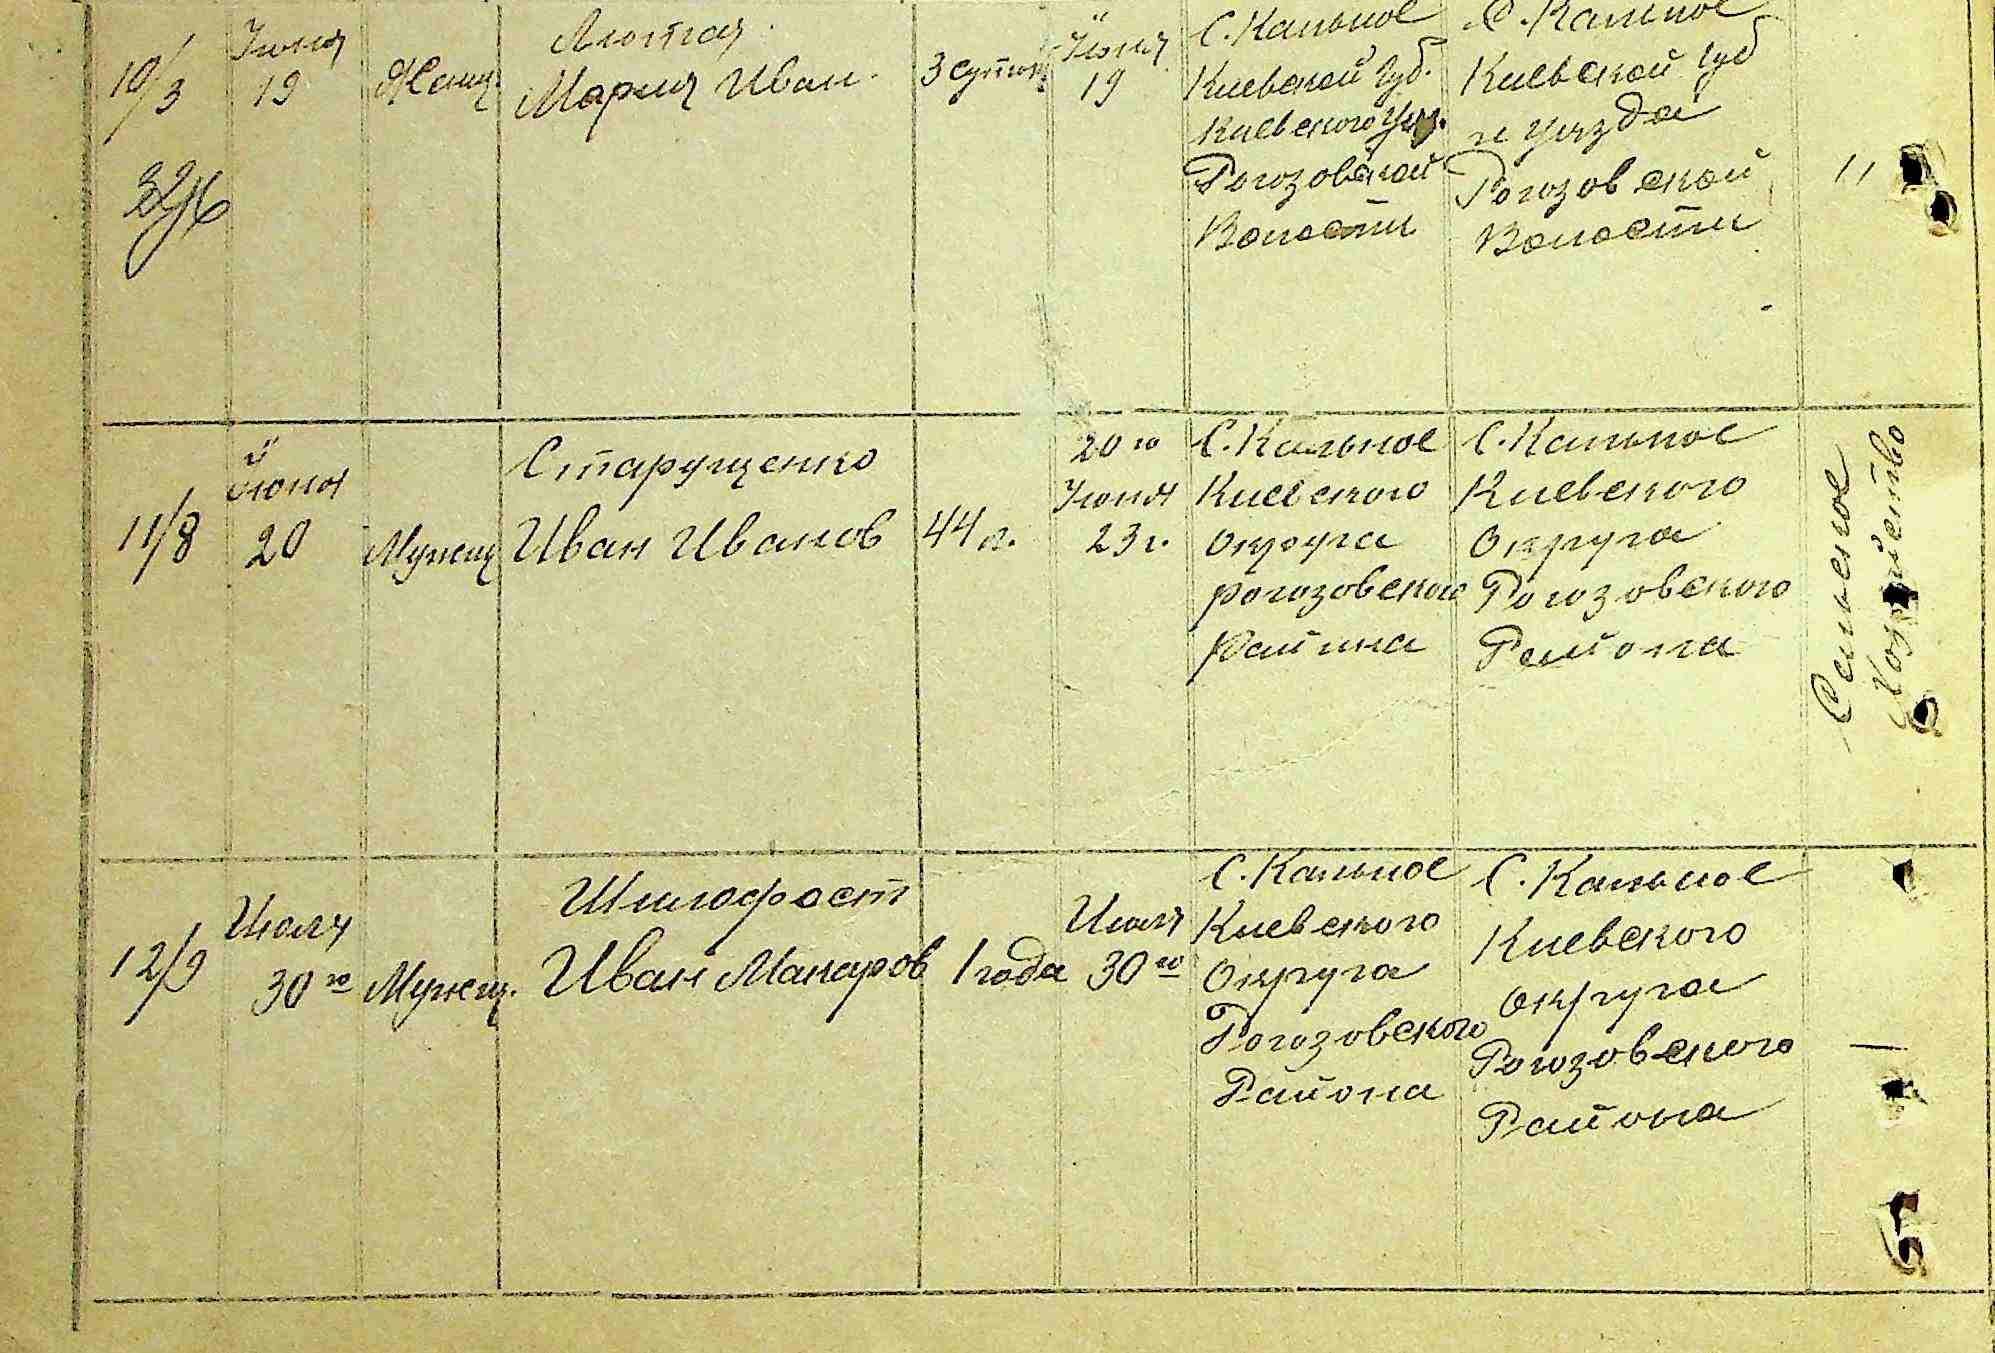 10/3
Июня
19
Женщ.
Лютая
Мария Иван.
3 суток
Июня
19
С. Кальное
Киевской Губ.
Киевского Уез.
Рогозовской
Волости
С. Кальное
Киевской Губ
и уезда
Рогозовской
Волости
"
11/8
Июня
20
Мужщ
Старущенко
Иван Иванов
44 л.
20 го
Июня
23 г.
С. Кальное
Киевского
Округа
Рогозовского
Района
С. Кальное
Киевского
Округа
Рогозовского
Района
Сельское
Хозяйство
12/9
Июля
30 го
Мужщ.
Шилофост
Иван Макаров
1 года
Июля
30 го
С. Кальное
Киевского
Округа
Рогозовского
Района
С. Кальное
Киевского
Округа
Рогозовского
Района
—